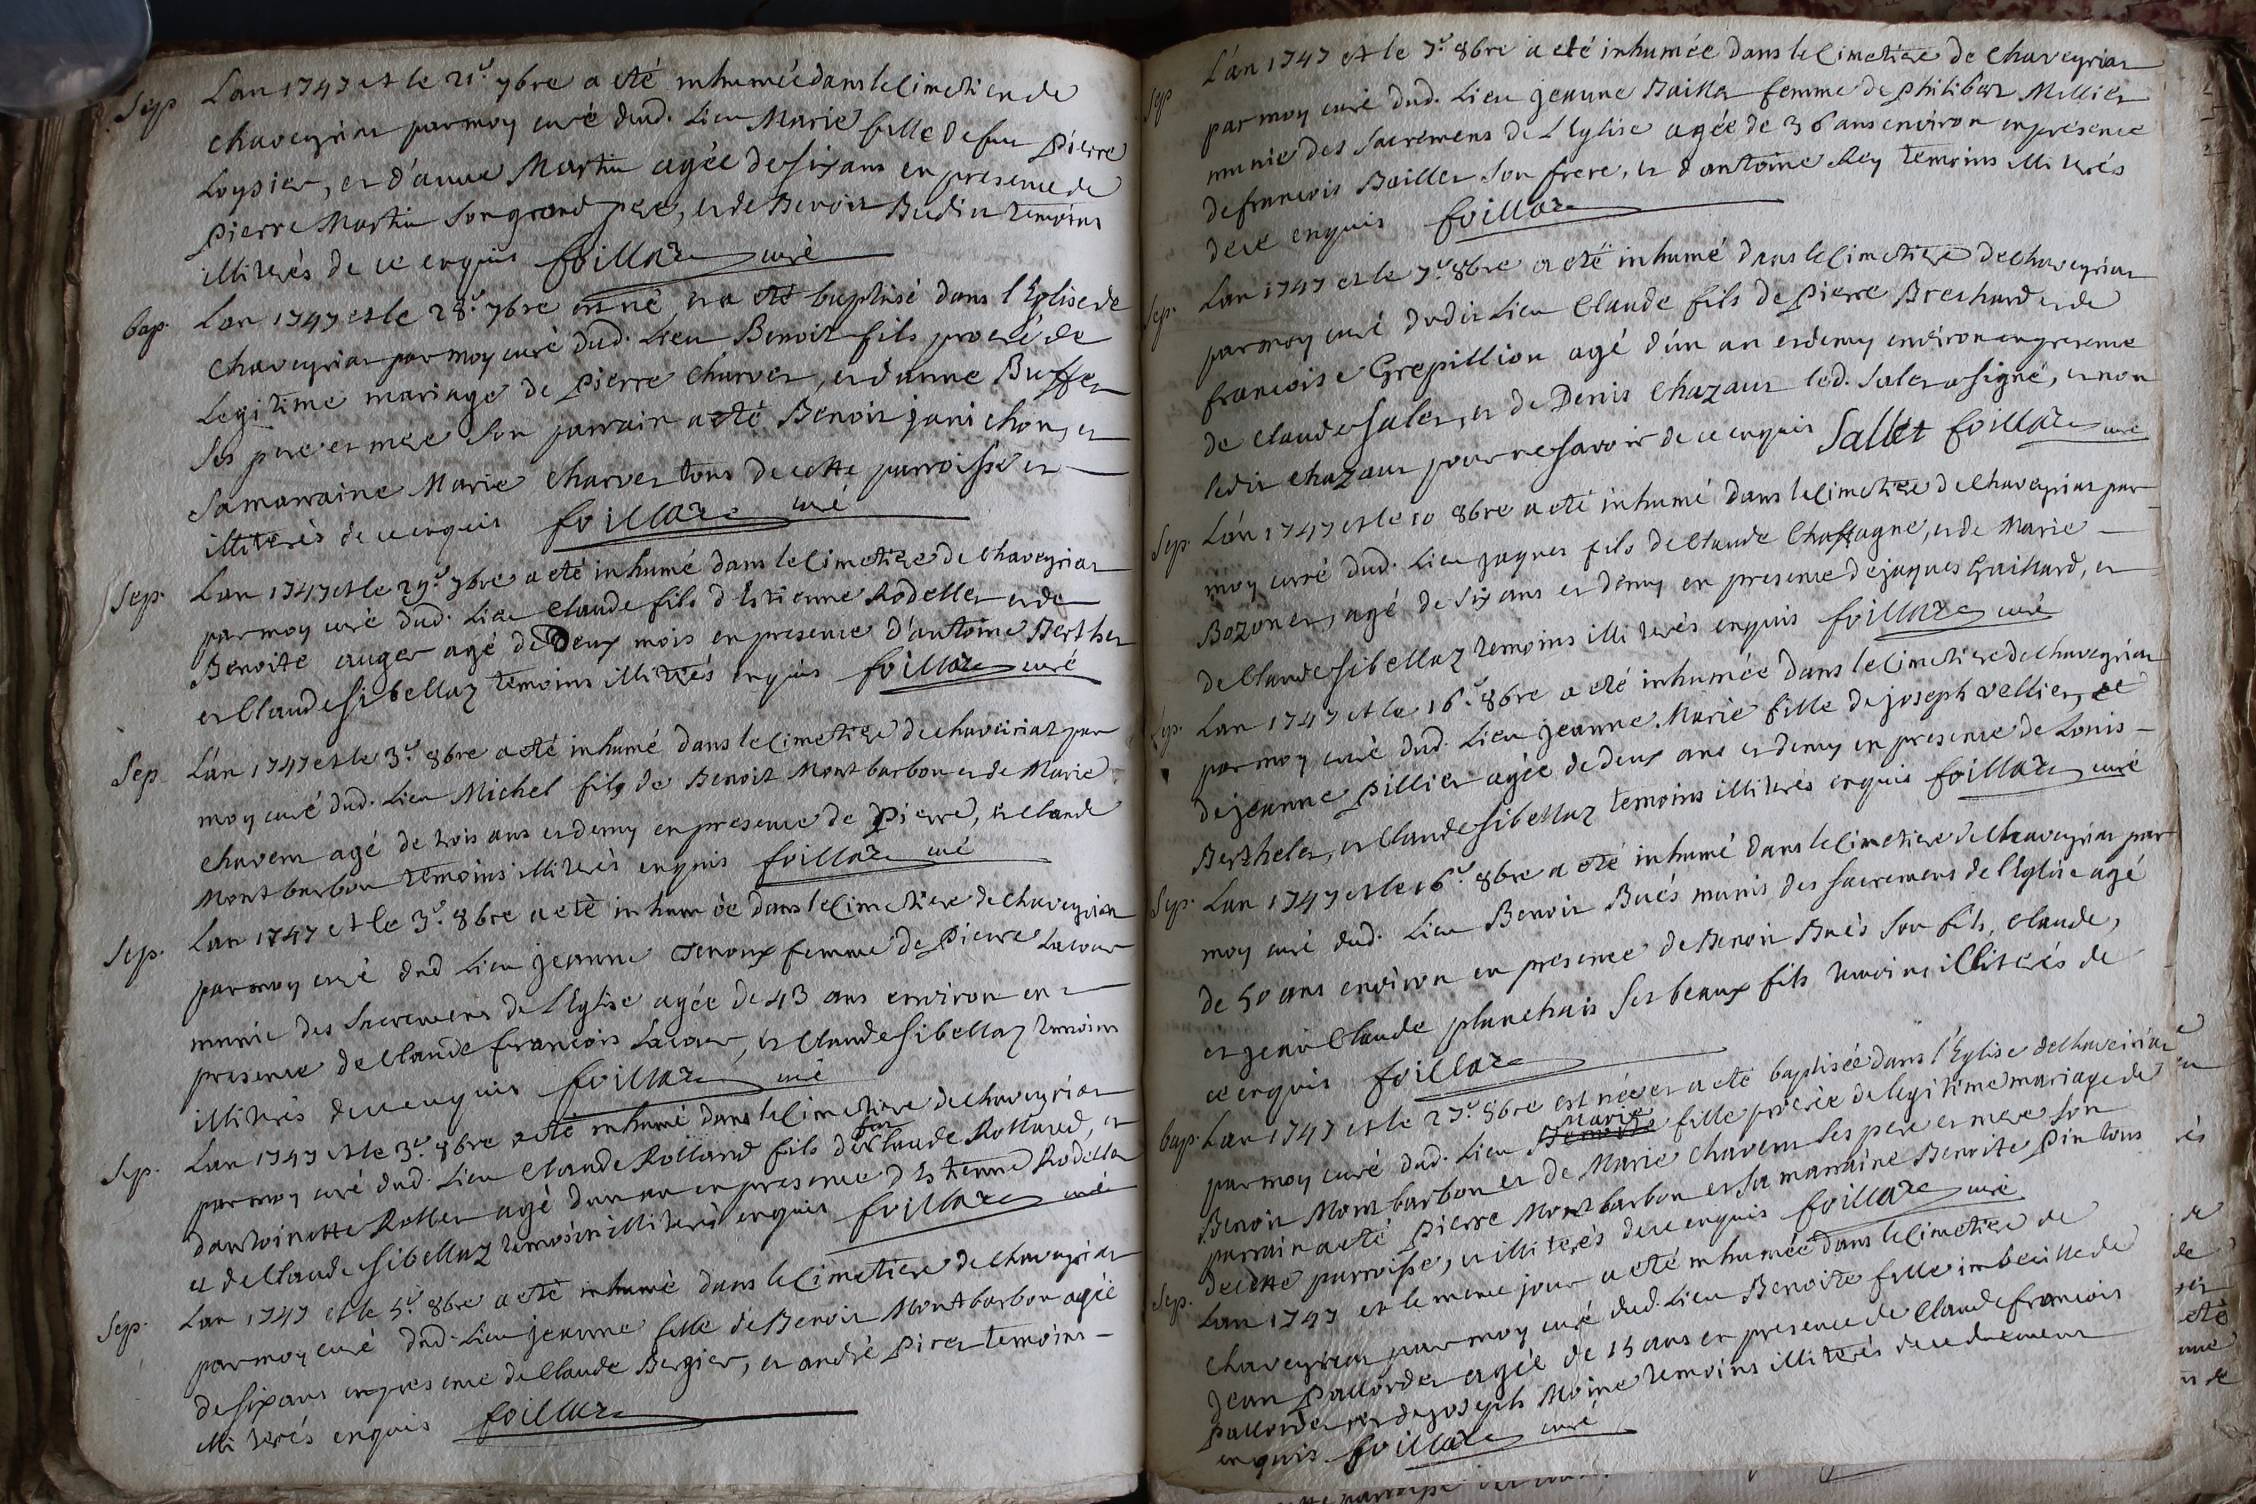 Sep L'an 1747 et le 21e 7bre a eté inhumée dans le Cimetiere de
Chaveyriat par moy curé dud. Lieu Marie fille de feu Pierre
Loysier, et d'anne Martin agée de six ans en presence de
pierre Martin son grand pere, et de Benoit Budin temoins
illiterés de ce enquis foillaz curé
bap. L'an 1747 et le 28e 7bre est né et a eté baptisé dans l'Eglise de
Chaveyriat par moy curé dud. Lieu Benoit fils procréé de
Legitime mariage de pierre Charvet, et d'anne Buffet
ses pere et mere son parrain a eté Benoit janichon, et
sa marraine Marie Charvet tous de cette parroisse et
illiterés de ce enquis foillaz curé
Sep. L'an 1747 et le 29e 7bre a eté inhumé dans le Cimetiere de Chaveyriat
par moy curé dud. Lieu Claude fils d'Estienne Rodellet et de
Benoite auger agé de Deux mois en presence d'antoine Berthet
et Claude Sibellaz temoins illiterés enquis foillaz curé
Sep. L'an 1747 et le 3e 8bre a eté inhumé dans le Cimetiere de chaveiriat par
moy curé dud. Lieu Michel fils de Benoit Montbarbon et de Marie
Chavent agé de trois ans et demy en presence de Pierre, et Claude
Montbarbon temoins illiterés enquis foillaz curé
Sep. L'an 1747 et le 3e 8bre a eté inhumée dans le Cimetiere de Chaveyriat
par moy curé dud Lieu jeanne Genoux femme de Pierre Lacour
munie des Sacremens de L'Eglise agée de 43 ans environ en
presence de Claude françois Lacour, et Claude Sibellaz temoins
illiterés de ce enquis foillaz curé
Sep. L'an 1747 et le 3e 8bre a eté inhumé dans le Cimetiere de Chaveyriat
par moy curé dud. Lieu Claude Rolland fils de feu Claude Rolland, et
d'antoinette Rollet agé d'un an en presence d'Estienne Rodellet
et de Claude Sibellaz temoins illiterés enquis foillaz curé
Sep. L'an 1747 et le 5e 8bre a eté inhumé dans le Cimetiere de Chaveyriat
par moy curé dud. Lieu jeanne fille de Benoit Montbarbon agée
de six ans en presence de Claude Bergier, et andré Piret temoins
illiterés enquis foillaz
Sep L'an 1747 et le 7e 8bre a eté inhumée dans le Cimetiere de Chaveyriat
par moy curé dud. Lieu jeanne Baillet femme de philibert Millier
munie des Sacremens de L'Eglise agée de 36 ans environ en presence
de françois Baillet son frere, et d'antoine Rey temoins illiterés
de ce enquis foillaz
Sep. L'an 1747 et le 7e 8bre a eté inhumé dans le Cimetiere de Chaveyriat
par moy curé dudit Lieu Claude fils de Pierre Brechard et de
françoise Grepillion agé d'un an et demy environ en presence
de Claude Salet, et de Denis Chazaut led. Salet a signé, et non
ledit Chazaut pour ne savoir de ce enquis Sallet foillaz curé
Sep. L'an 1747 et le 10 8bre a eté inhumé dans le Cimetiere de Chaveyriat par
moy curé dud. Lieu jaques fils de Claude Chassagne, et de Marie
Bozonet, agé de six ans et demy en presence de jaques Guillard, et
de Claude Sibellaz temoins illiterés enquis foillaz curé
Sep. L'an 1747 et le 16e 8bre a eté inhumée dans le Cimetiere de Chaveyriat
par moy curé dud. Lieu jeanne Marie fille de joseph Vellier, et
de jeanne Pillier agée de deux ans et demy en presence de Louis
Berthelet, et Claude Sibellaz temoins illiterés enquis foillaz curé
Sep. L'an 1747 et le 16e 8bre a eté inhumé dans le Cimetiere de Chaveyriat par
moy curé dud. Lieu Benoit Bués munis des Sacremens de l'Eglise agé
de 50 ans environ en presence de Benoit Bués son fils, Claude,
et jean Claude planchais ses beaux fils temoins illiterés de
ce enquis foillaz
bap. L'an 1747 et le 27e 8bre est née et a eté baptisée dans l'Eglise de Chaveiriat
par moy curé dud. Lieu Marie fille procréée de legitime mariage de
Benoit Montbarbon et de Marie Chavent ses pere et mere son
parrain a eté Pierre Montbarbon et sa marraine Benoite Pin tous
de cette parroisse, et illiterés de ce enquis foillaz curé
Sep. L'an 1747 et le meme jour a eté inhumée dans le Cimetiere de
Chaveyriat par moy curé dud. Lieu Benoite fille imbecille de
Jean Pallordet agée de 15 ans en presence de Claude françois
Pallordet et de joseph Moine temoins illiterés de ce duement
enquis foillaz curé